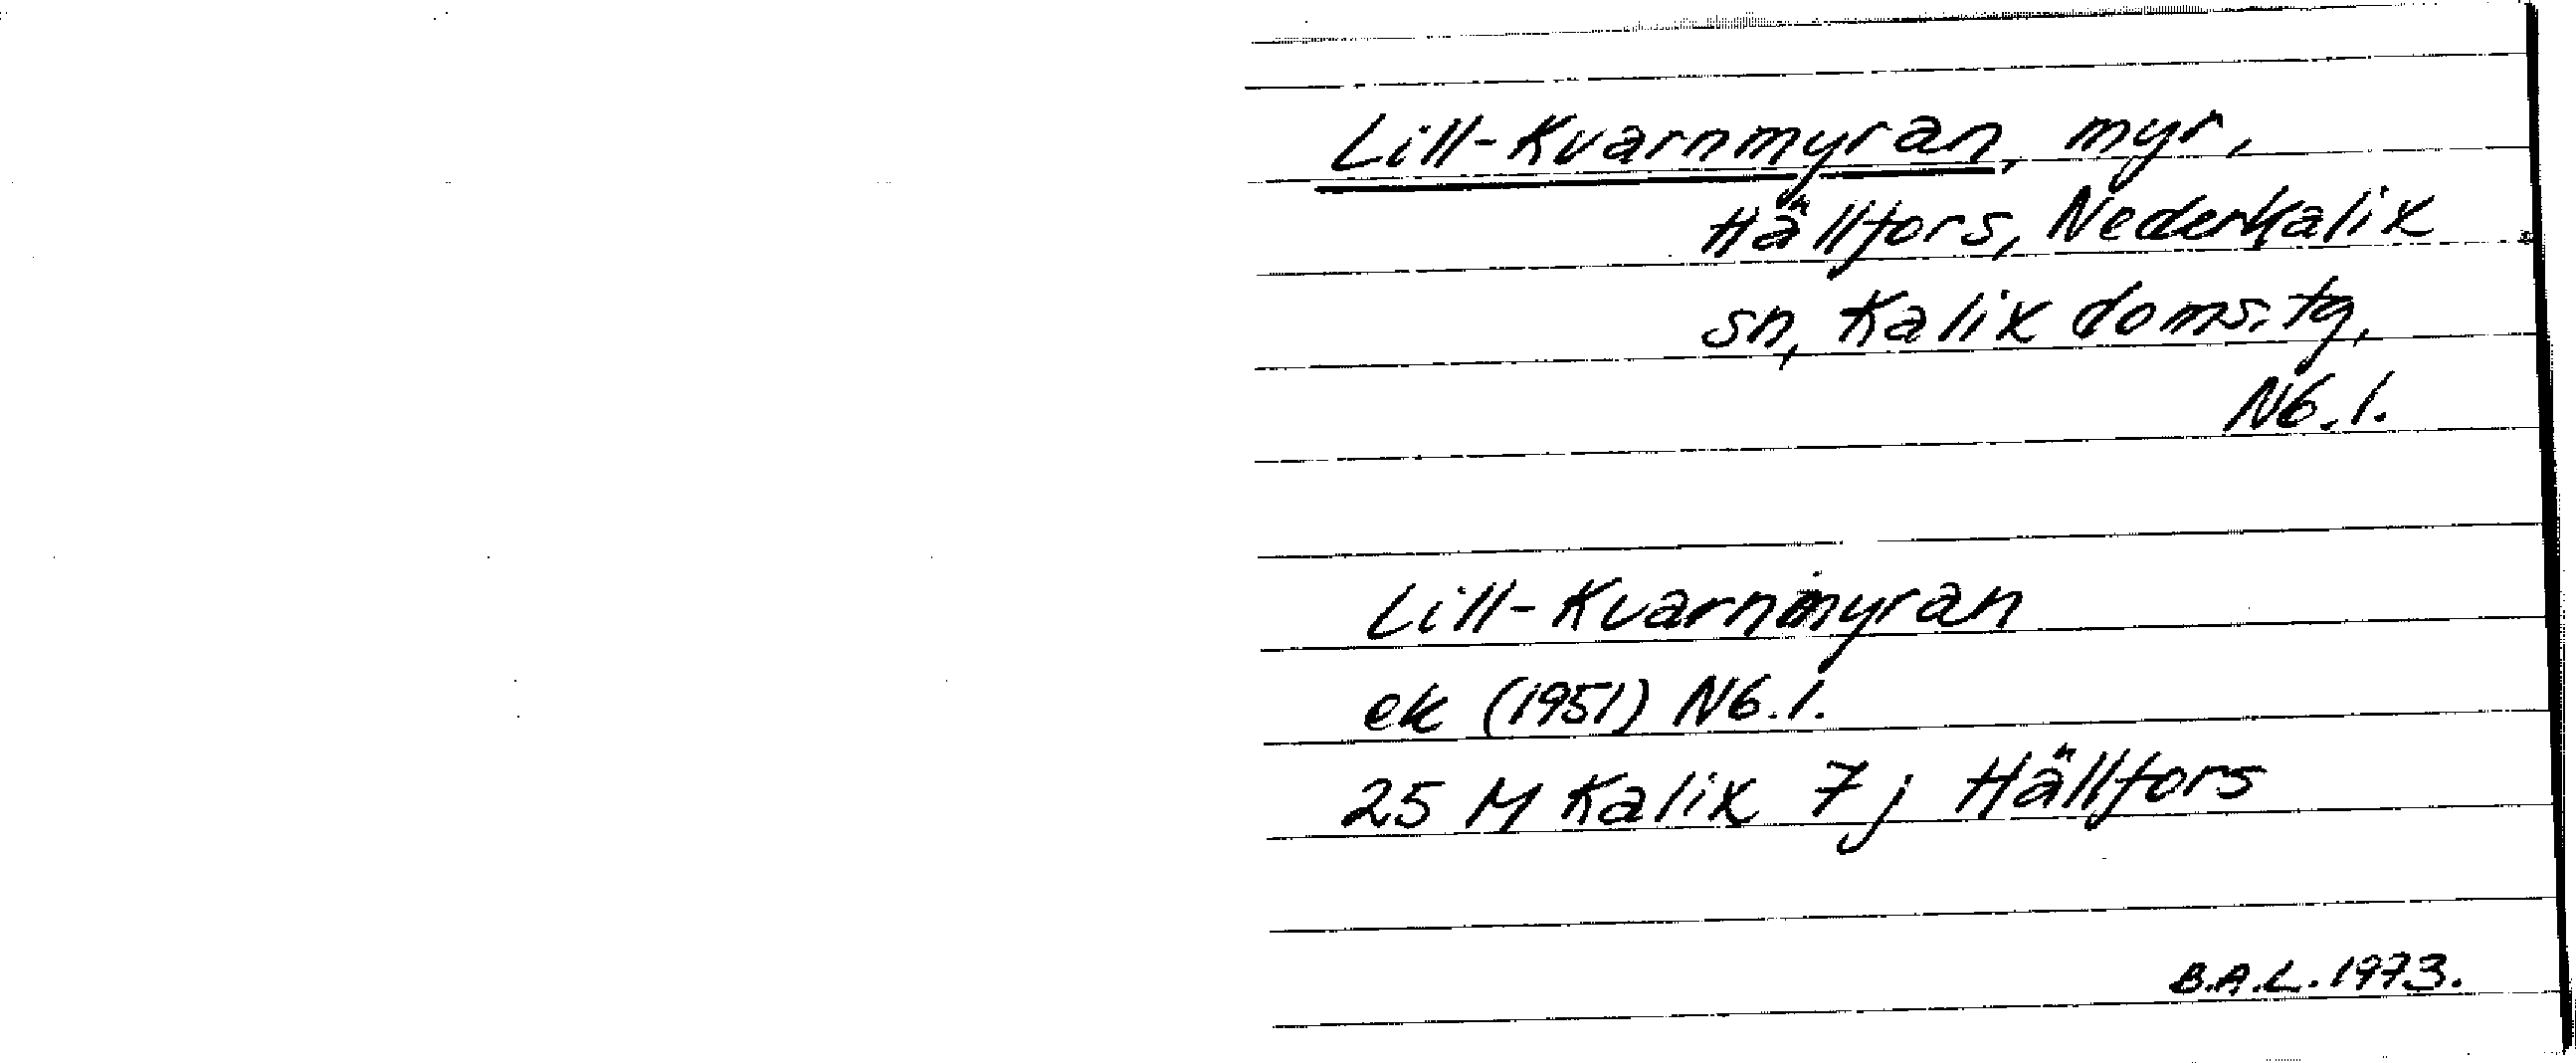 Lill-Kvarnmyran, myr,
Hällfors, Nederkalix
sn, Kalix doms.tg,
Nb.l.
Lill-Kvarnmyran
ek (1951) Nb.l.
25 M Kalix 7j Hällfors
B.A.L. 1973.